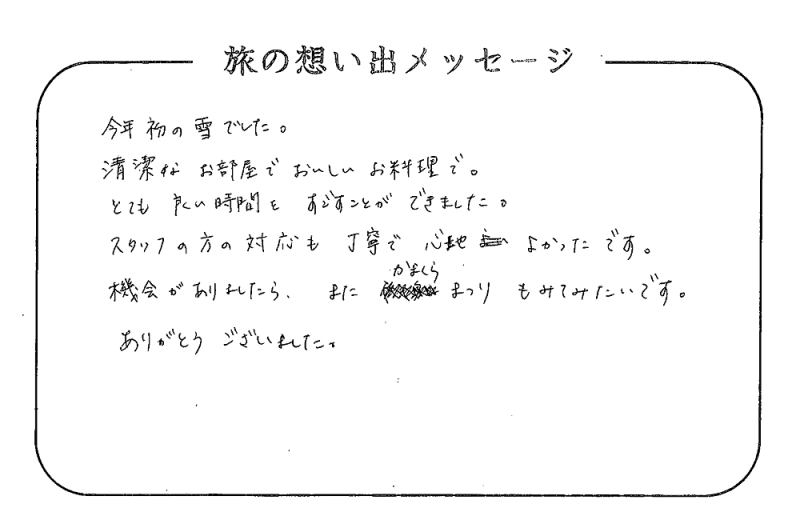 旅の想い出メッセージ
今年初の雪でした。
清潔なお部屋でおいしいお料理で。
とても良い時間をすごすことができました。
スタッフの方の対応も丁寧で心地よかったです。
機会がありましたら、またかまくらまつりもみてみたいです。
ありがとうございました。